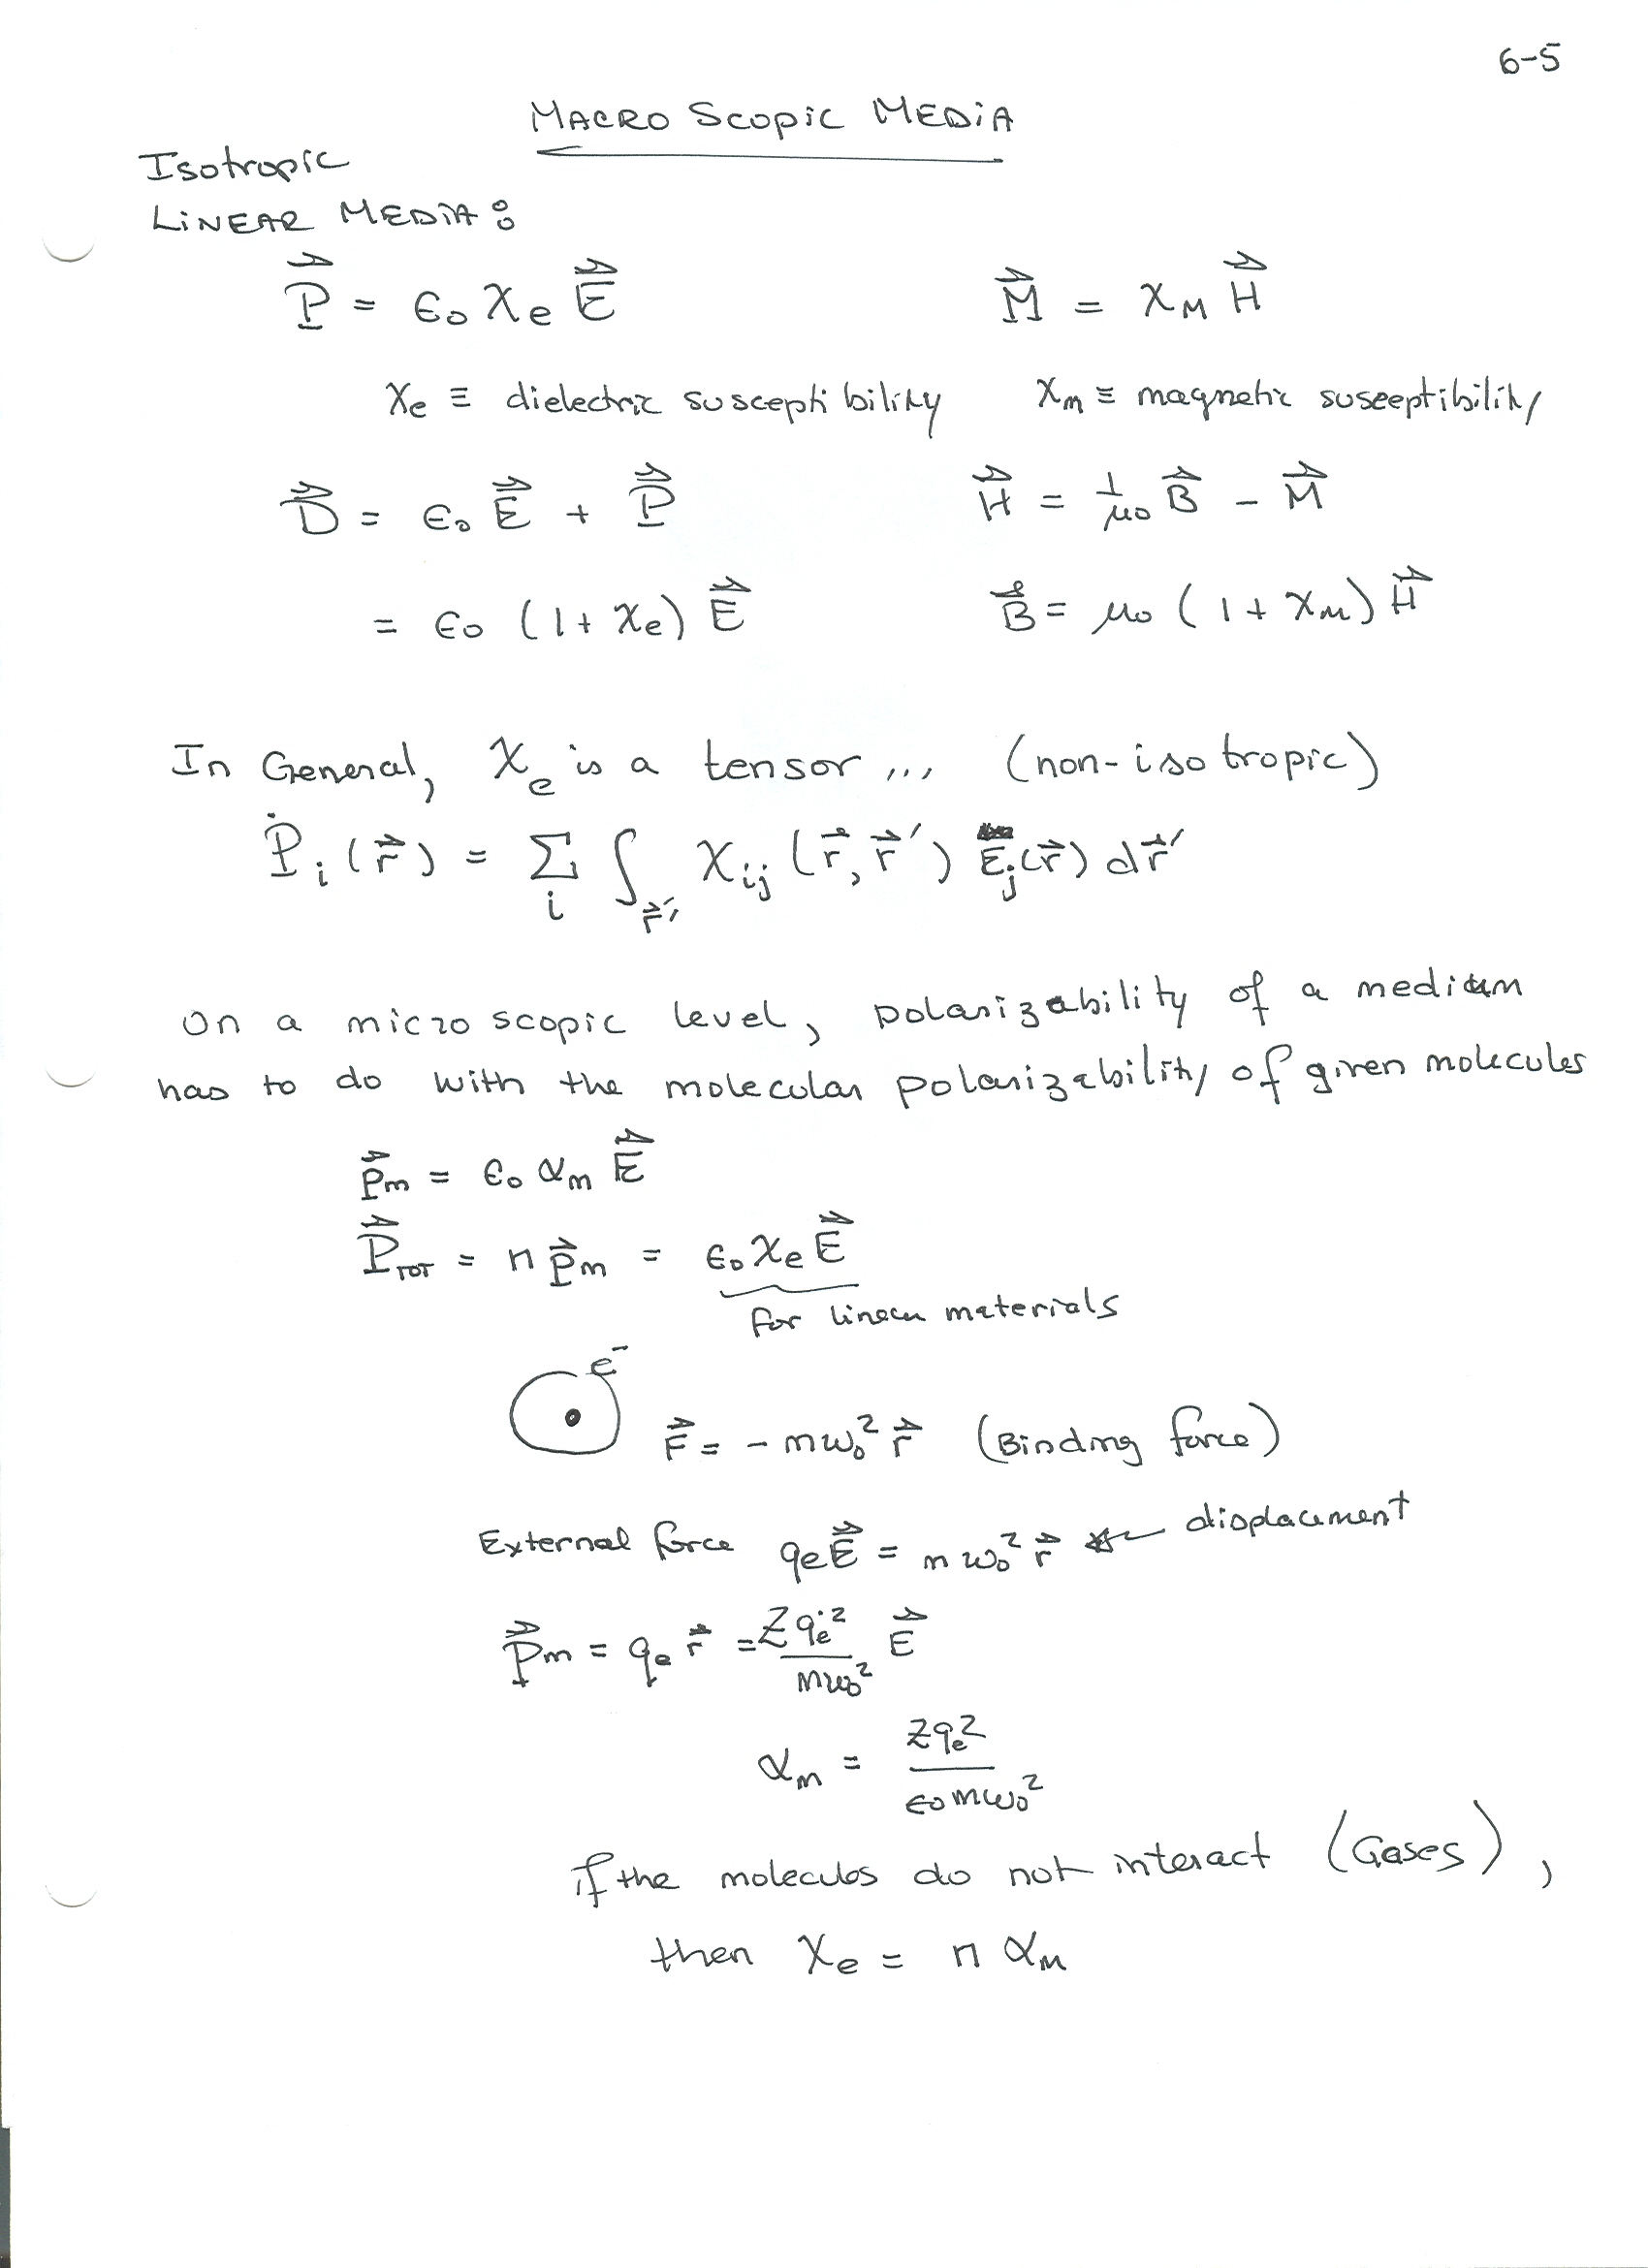 6-5
MACRO SCOPIC MEDIA
Isotropic
LINEAR MEDIA:
P⃗ = ϵ₀ χₑ E⃗    M⃗ = χ_M H⃗
χₑ ≡ dielectric susceptibility    χₘ ≡ magnetic susceptibility
D⃗ = ϵ₀ E⃗ + P⃗    H⃗ = 1/μ₀ B⃗ − M⃗
= ϵ₀ (1 + χₑ) E⃗    B⃗ = μ₀ (1 + χₘ) H⃗
In General, χₑ is a tensor ... (non-isotropic)
Pᵢ(r⃗) = Σᵢ ∫_r⃗′ χᵢⱼ (r⃗, r⃗′) Eⱼ(r⃗) dr⃗′
On a microscopic level, polarizability of a medium
has to do with the molecular polarizability of given molecules
p⃗ₘ = ϵ₀ αₘ E⃗
P⃗_TOT = n p⃗ₘ = ϵ₀ χₑ E⃗
for linear materials
e⁻
F⃗ = − mω₀² r⃗ (Binding force)
External force qₑE⃗ = mω₀² r⃗ ← displacement
p⃗ₘ = qₑ r⃗ = Zqₑ²/mω₀² E⃗
αₘ = Zqₑ²/ϵ₀mω₀²
if the molecules do not interact (Gases),
then χₑ = n αₘ